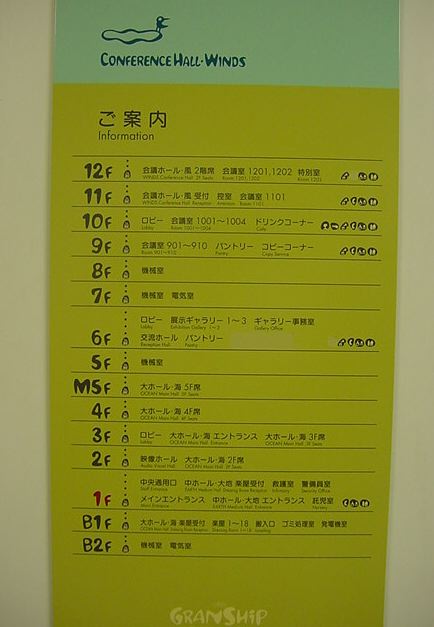 CONFERENCE HALL·WINDS
ご案内
Information
12F 会議ホール・風 2階席 会議室 1201,1202 特別室
WINDS Conference Hall 2F Seats Room 1201,1202 Room 1203
11F 会議ホール・風 受付 控室 会議室 1101
WINDS Conference Hall Reception Room 1101
10F ロビー 会議室 1001〜1004 ドリンクコーナー
Lobby Room 1001〜1004 Cafe
9F 会議室 901〜910 パントリー コピーコーナー
Room 901〜910 Pantry Copy Service
8F 機械室
7F 機械室 電気室
ロビー 展示ギャラリー 1〜3 ギャラリー事務室
Lobby Exhibition Gallery 1〜3 Gallery Office
6F 交流ホール パントリー
Reception Hall Pantry
5F 機械室
M5F 大ホール・海 5F席
OCEAN Main Hall 5F Seats
4F 大ホール・海 4F席
OCEAN Main Hall 4F Seats
3F ロビー 大ホール・海 エントランス 大ホール・海 3F席
Lobby OCEAN Main Hall Entrance OCEAN Main Hall 3F Seats
2F 映像ホール 大ホール・海 2F席
Audio Visual Hall OCEAN Main Hall 2F Seats
中央通用口 中ホール・大地 楽屋受付 救護室 警備員室
Staff Entrance EARTH Medium Hall Dressing Room Reception Infirmary Security Office
1F メインエントランス 中ホール・大地 エントランス 託児室
Main Entrance EARTH Medium Hall Entrance Nursery
B1F 大ホール・海 楽屋受付 楽屋 1〜18 搬入口 ゴミ処理室 発電機室
OCEAN Main Hall Dressing Room Reception Dressing Room 1〜18 Loading
B2F 機械室 電気室
GRANSHIP